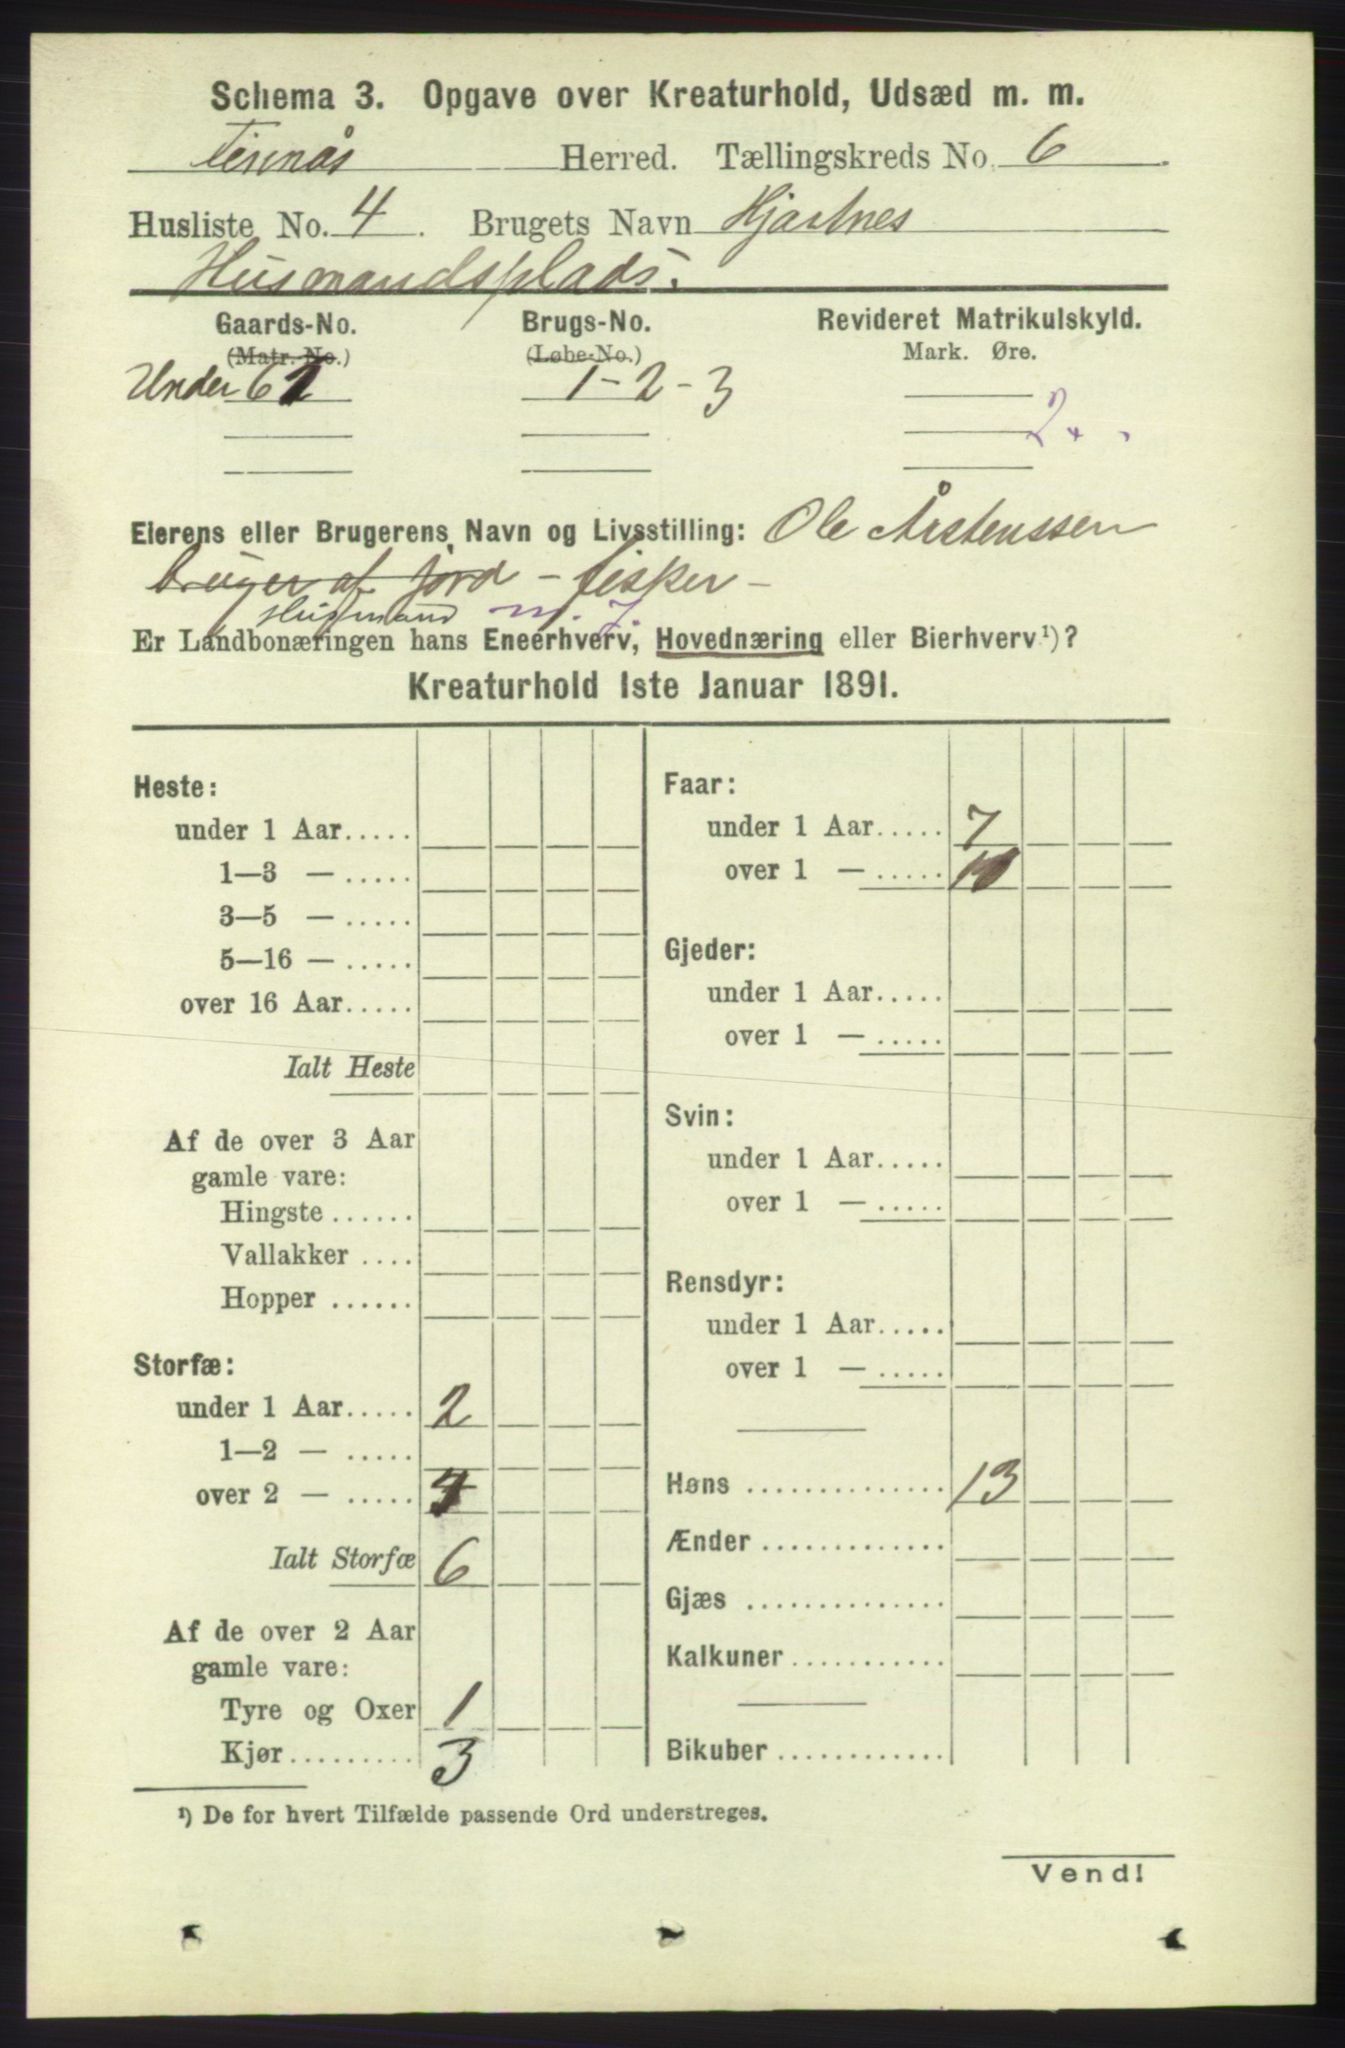 Schema 3. Opgave over Kreaturhold, Udsæd m. m.
Herred. Tællingskreds No. 6.
Husliste No. 4. Brugets Navn Hjartnes
Husmandsplads.
Gaards-No. Brugs-No. Revideret Matrikulskyld.
(Matr. No.) (Løbe-No.) Mark. Øre.
Under 62 1-2-3
2
Eierens eller Brugerens Navn og Livsstilling: Ole Årstenssen
bruger af jord - fisker -
Husmand m. j.
Er Landbonæringen hans Eneerhverv, Hovednæring eller Bierhverv ¹)?
Kreaturhold 1ste Januar 1891.
Heste:
under 1 Aar.....
1—3 — .....
3—5 — .....
5—16 — .....
over 16 Aar.....
Ialt Heste
Af de over 3 Aar
gamle vare:
Hingste ......
Vallakker ....
Hopper ......
Storfæ:
under 1 Aar..... 2
1—2 — .....
over 2 — ..... 4
Ialt Storfæ 6
Af de over 2 Aar
gamle vare:
Tyre og Oxer 1
Kjør......... 3
Faar:
under 1 Aar..... 7
over 1 — ..... 10
Gjeder:
under 1 Aar.....
over 1 — .....
Svin:
under 1 Aar.....
over 1 — .....
Rensdyr:
under 1 Aar.....
over 1 — .....
Høns .............. 13
Ænder .............
Gjæs ..............
Kalkuner...........
Bikuber ............
¹) De for hvert Tilfælde passende Ord understreges.
Vend!